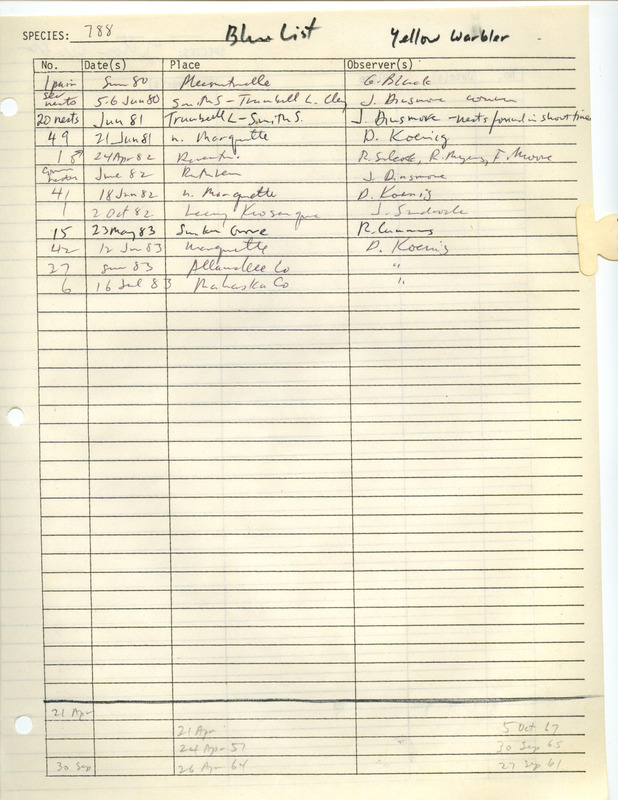 SPECIES: 788 Blue List Yellow Warbler
No. Date(s) Place Observer(s)
1 pair Sum 80 Pleasantville G. Black
sev nests 5-6 Jun 80 Smith S - Trumbull L. Clay J. Dinsmore common
20 nests Jun 81 Trumbull L - Smith S. J. Dinsmore - nests found in short time
49 21 Jun 81 n. Marquette D. Koenig
1 ♂ 24 Apr 82 R. Silcock, R. Myers, F. Moore
June 82 Ruthven J. Dinsmore
41 18 Jun 82 n. Marquette D. Koenig
1 2 Oct 82 J. Sandrock
15 23 May 83 Sunken Grove R. Cummins
42 12 Jun 83 Marquette D. Koenig
27 sum 83 Allamakee Co "
6 16 Jul 83 Mahaska Co "
21 Apr
21 Apr 5 Oct 67
24 Apr 57 30 Sep 65
30 Sep 26 Apr 64 27 Sep 61